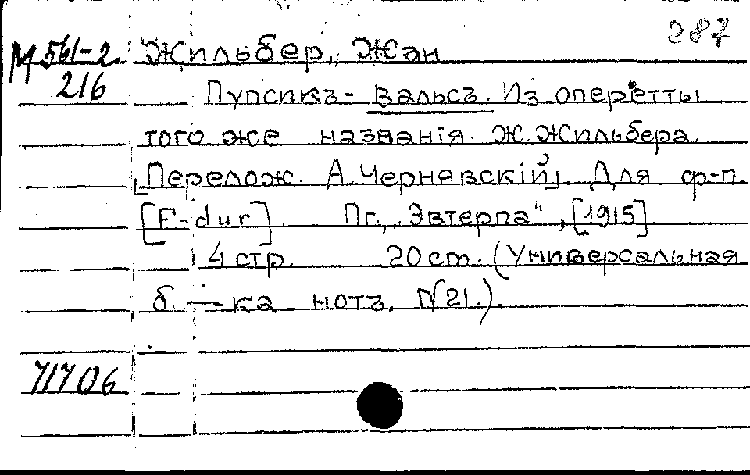 287
М 561-2. Жильбер, Жан
216
Пупсикъ - вальсъ. Из оперетты
того же названія Ж. Жильбера.
[Перелож. А. Чернявскій]. Для ф-п.
[F-dur] Пг., „Эвтерпа", [1915]
4 стр. 20 ст. (Универсальная
б. - ка нотъ. №21.).
71706